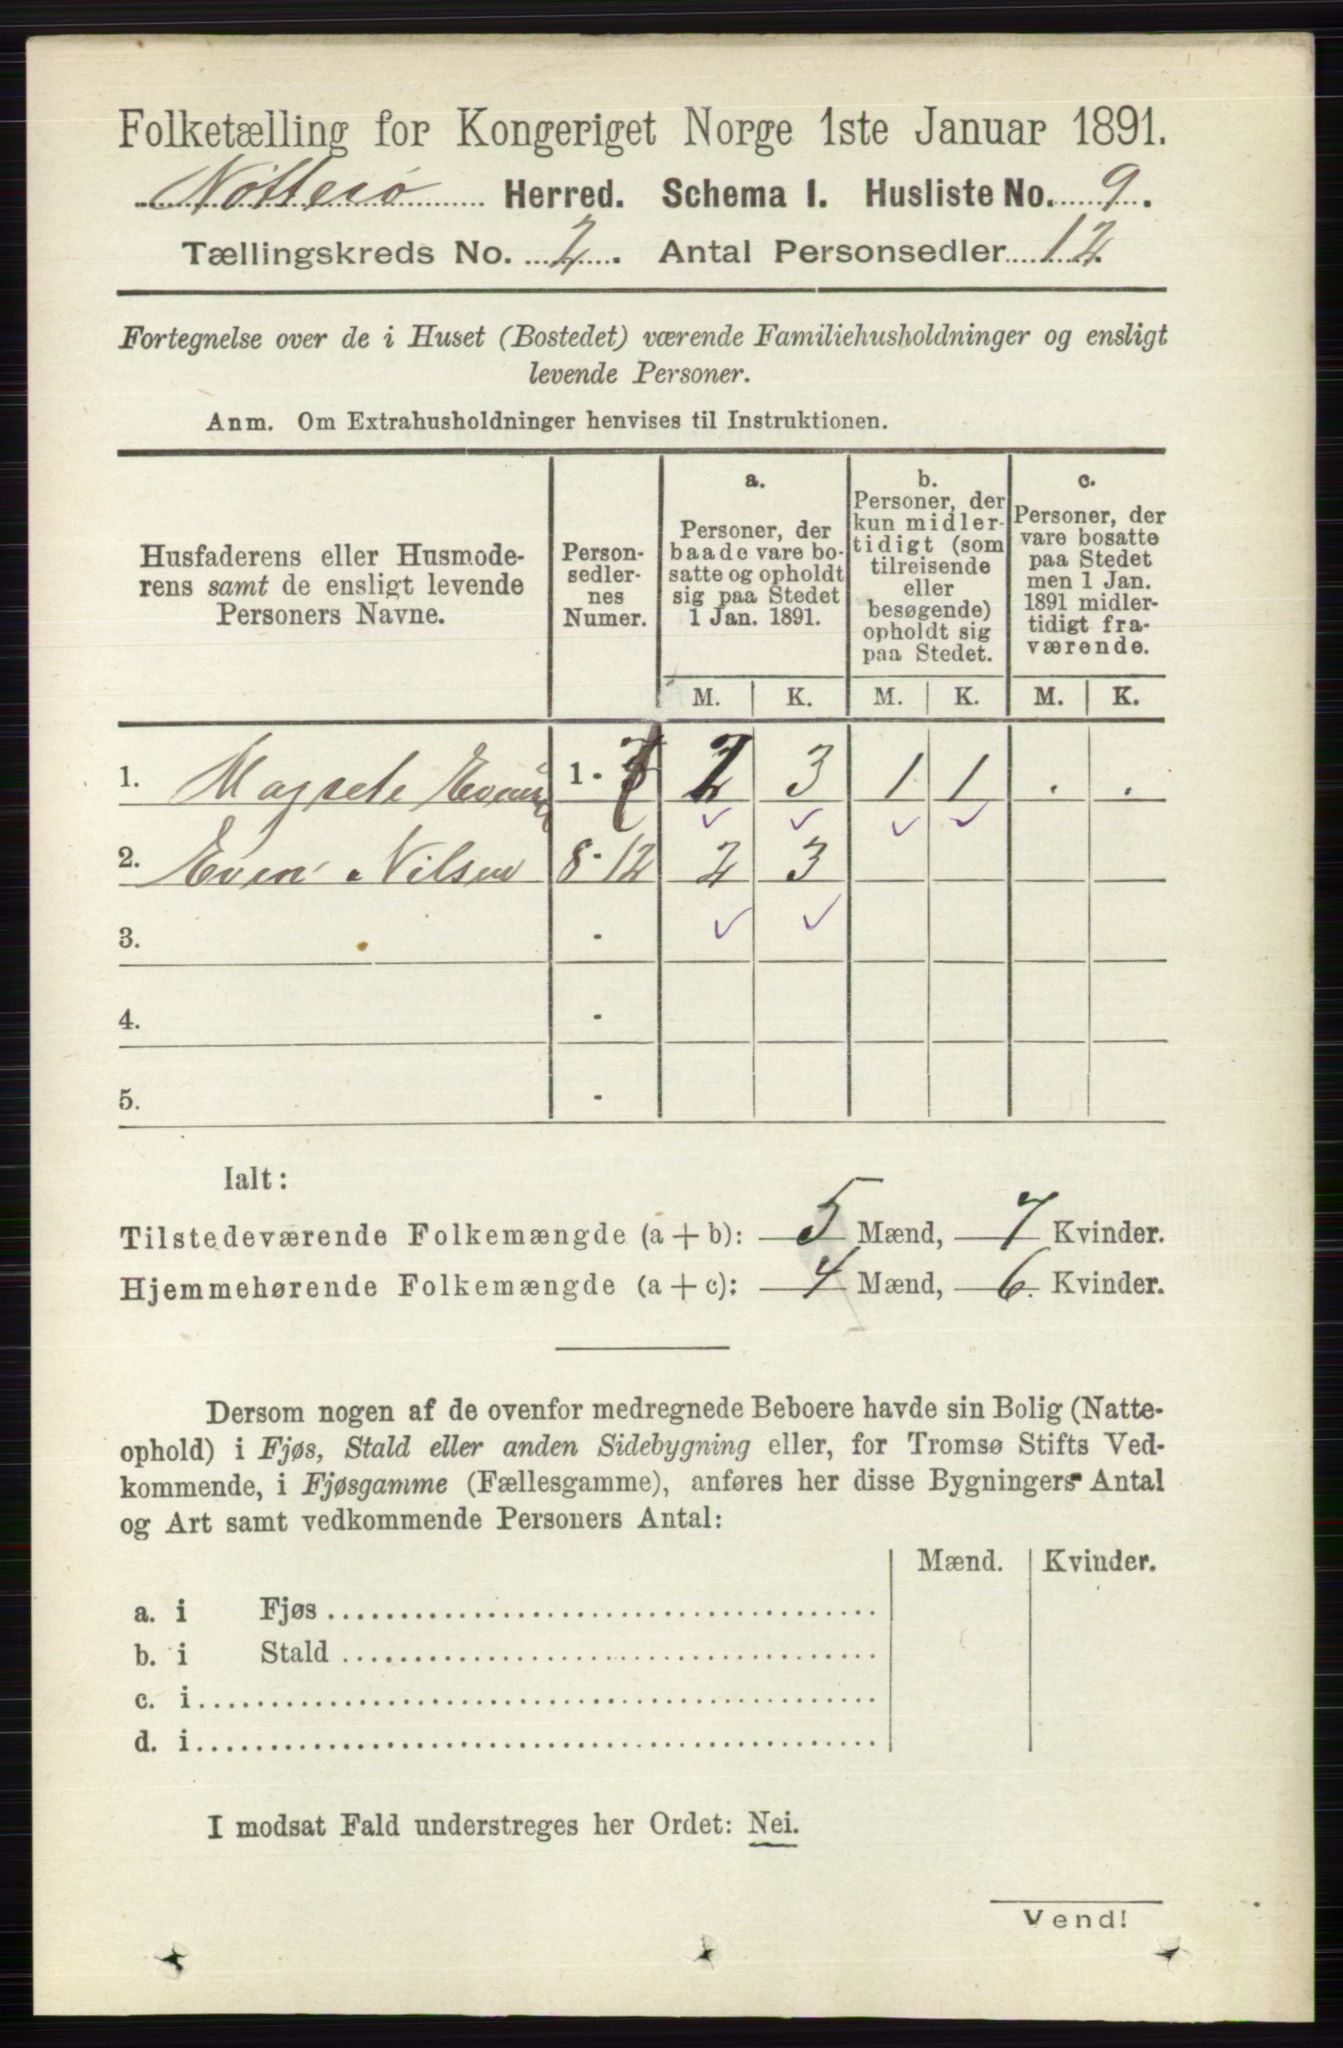 Folketælling for Kongeriget Norge 1ste Januar 1891.
Nötterö Herred. Schema I. Husliste No. 9.
Tællingskreds No. 2. Antal Personsedler 12.
Fortegnelse over de i Huset (Bostedet) værende Familiehusholdninger og ensligt
levende Personer.
Anm. Om Extrahusholdninger henvises til Instruktionen.
Husfaderens eller Husmode-
rens samt de ensligt levende
Personers Navne.
Person-
sedler-
nes
Numer.
a.
Personer, der
baade vare bo-
satte og opholdt
sig paa Stedet
1 Jan. 1891.
b.
Personer, der
kun midler-
tidigt (som
tilreisende
eller
besøgende)
opholdt sig
paa Stedet.
c.
Personer, der
vare bosatte
paa Stedet
men 1 Jan.
1891 midler-
tidigt fra-
værende.
M. K. M. K. M. K.
1. Magrete 1 - 7 2 3 1 1 . .
2. Even Nilsen 8 - 12 2 3
3. -
4. -
5. -
Ialt:
Tilstedeværende Folkemængde (a + b): 5 Mænd, 7 Kvinder.
Hjemmehørende Folkemængde (a + c): 4 Mænd, 6. Kvinder.
Dersom nogen af de ovenfor medregnede Beboere havde sin Bolig (Natte-
ophold) i Fjøs, Stald eller anden Sidebygning eller, for Tromsø Stifts Ved-
kommende, i Fjøsgamme (Fællesgamme), anføres her disse Bygningers Antal
og Art samt vedkommende Personers Antal:
Mænd. Kvinder.
a. i Fjøs
b. i Stald
c. i
d. i
I modsat Fald understreges her Ordet: Nei.
Vend!